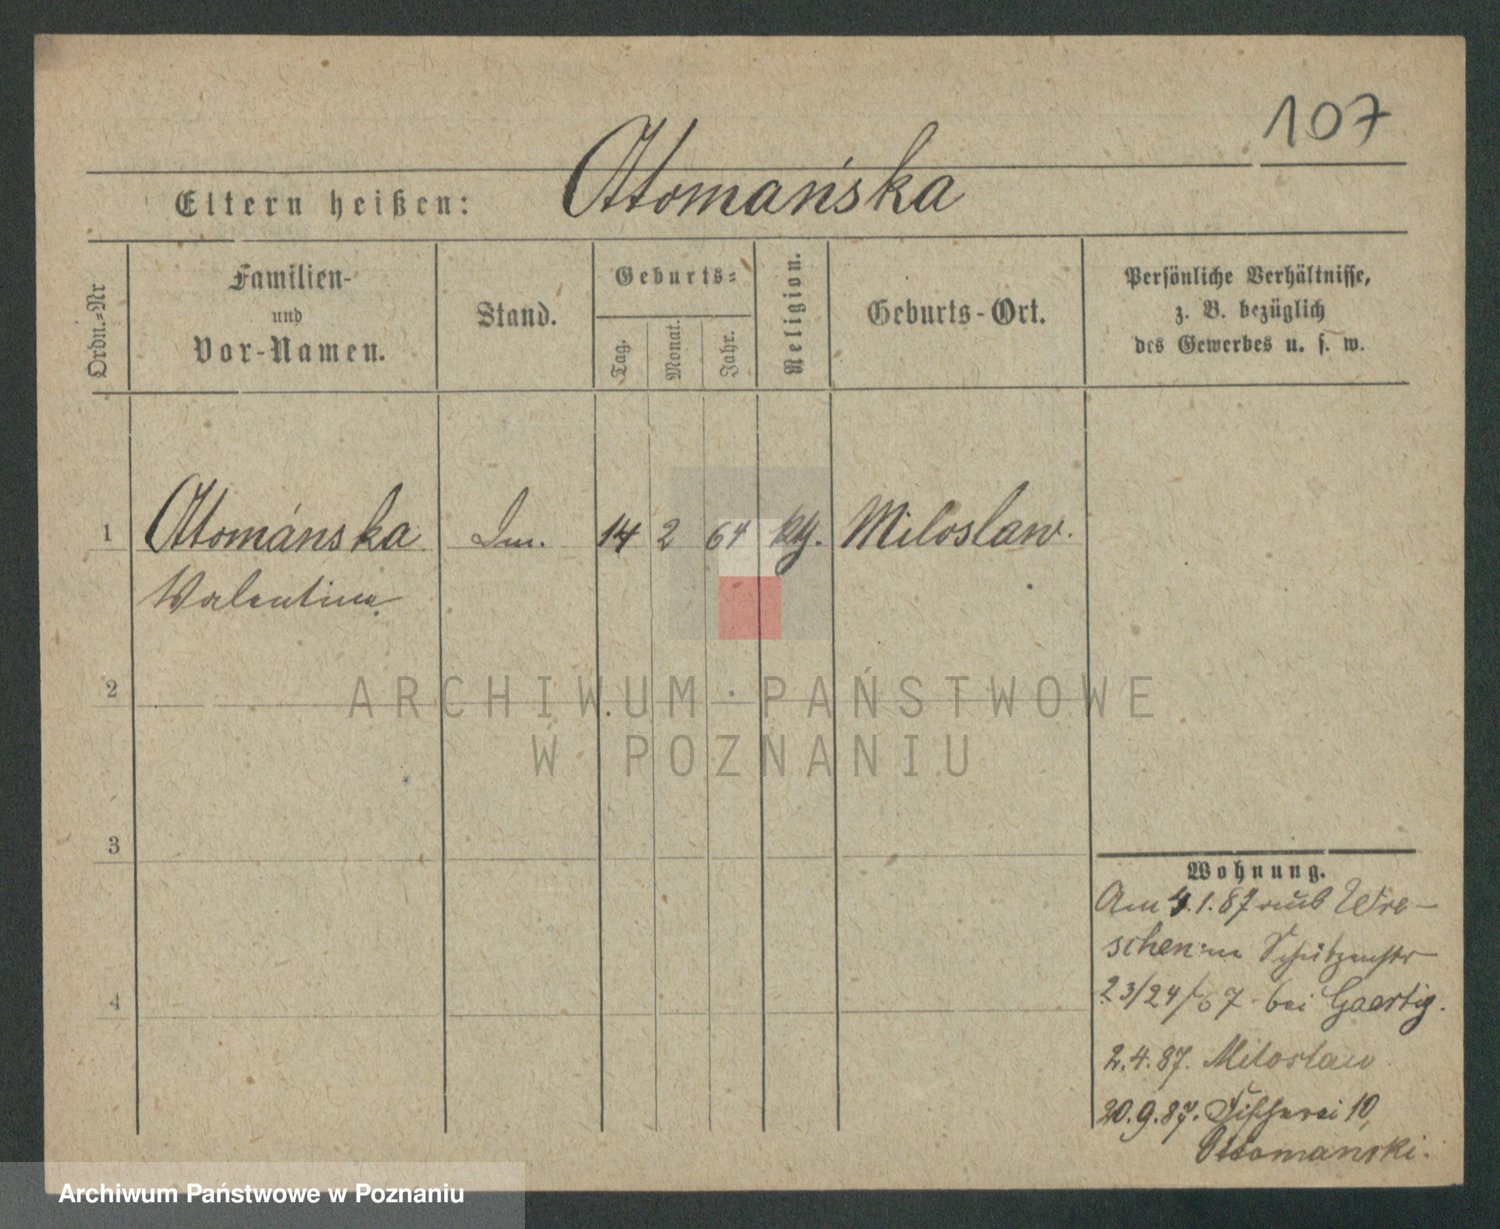 107
Eltern heißen: Ottomańska
Ordn.=Nr
Familien-
und
Vor-Namen.
Stand.
Geburts=
Tag.
Monat.
Jahr.
Religion.
Geburts-Ort.
Persönliche Verhältnisse,
z. B. bezüglich
des Gewerbes u. s. w.
1 Ottomańska 14 2 64 Miloslaw.
Valentina
2
3
4
ARCHIWUM PAŃSTWOWE
W POZNANIU
Wohnung.
Am 4.1.87 aus Wre-
schen Schützenstr
23/24 bei Gaertig.
2.4.87. Miloslaw
20.9.87. Fischerei 10,
Ottomanski.
Archiwum Państwowe w Poznaniu